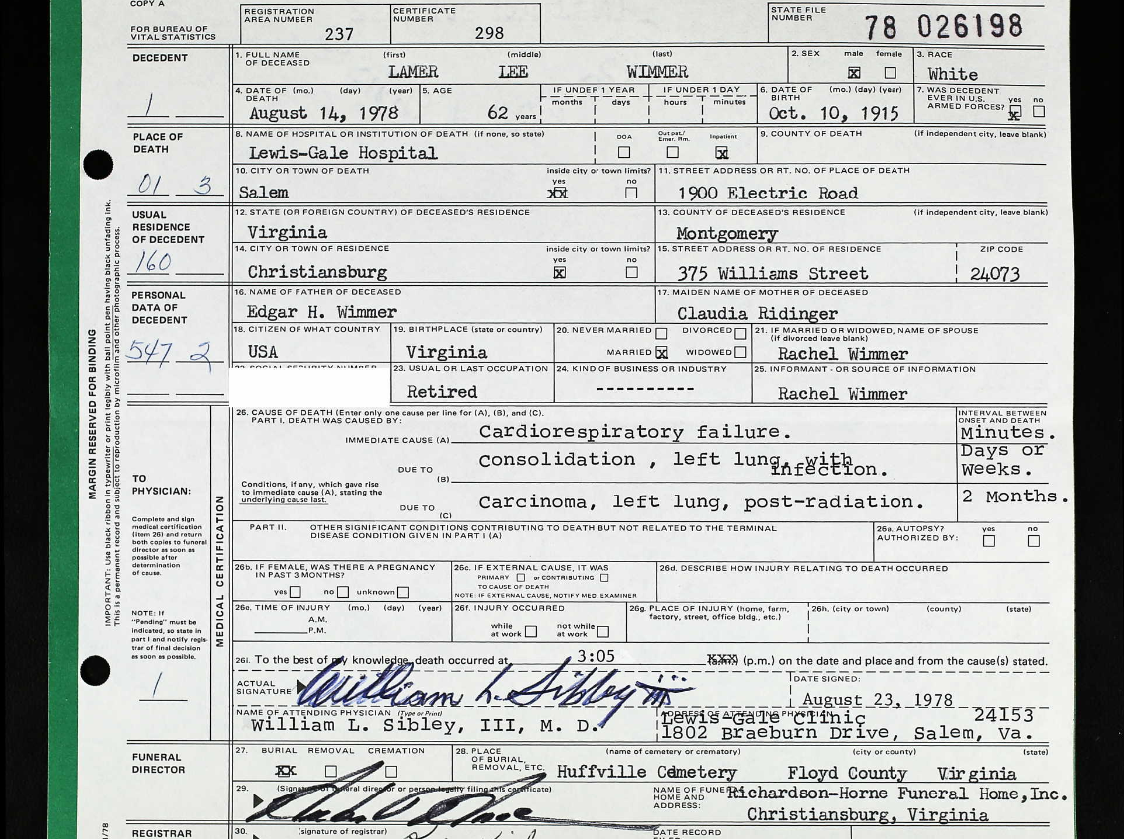 COPY A
FOR BUREAU OF VITAL STATISTICS
REGISTRATION AREA NUMBER 237
CERTIFICATE NUMBER 298
STATE FILE NUMBER 78 026198
DECEDENT
1
1. FULL NAME OF DECEASED (first) (middle) (last)
LAMER LEE WIMMER
2. SEX male female
3. RACE
White
4. DATE OF DEATH (mo.) (day) (year)
August 14, 1978
5. AGE
62 years
IF UNDER 1 YEAR
months days
IF UNDER 1 DAY
hours minutes
6. DATE OF BIRTH (mo.) (day) (year)
Oct. 10, 1915
7. WAS DECEDENT EVER IN U.S. ARMED FORCES? yes no
PLACE OF DEATH
01 3
8. NAME OF HOSPITAL OR INSTITUTION OF DEATH (if none, so state)
Lewis-Gale Hospital
DOA Out pat./Emer. Rm. Inpatient
9. COUNTY OF DEATH (if independent city, leave blank)
10. CITY OR TOWN OF DEATH inside city or town limits? yes no
Salem
11. STREET ADDRESS OR RT. NO. OF PLACE OF DEATH
1900 Electric Road
USUAL RESIDENCE OF DECEDENT
160
12. STATE (OR FOREIGN COUNTRY) OF DECEASED'S RESIDENCE
Virginia
13. COUNTY OF DECEASED'S RESIDENCE (if independent city, leave blank)
Montgomery
14. CITY OR TOWN OF RESIDENCE inside city or town limits? yes no
Christiansburg
15. STREET ADDRESS OR RT. NO. OF RESIDENCE ZIP CODE
375 Williams Street 24073
PERSONAL DATA OF DECEDENT
547 2
16. NAME OF FATHER OF DECEASED
Edgar H. Wimmer
17. MAIDEN NAME OF MOTHER OF DECEASED
Claudia Ridinger
18. CITIZEN OF WHAT COUNTRY
USA
19. BIRTHPLACE (state or country)
Virginia
20. NEVER MARRIED DIVORCED
MARRIED WIDOWED
21. IF MARRIED OR WIDOWED, NAME OF SPOUSE (if divorced leave blank)
Rachel Wimmer
23. USUAL OR LAST OCCUPATION
Retired
24. KIND OF BUSINESS OR INDUSTRY
----------
25. INFORMANT - OR SOURCE OF INFORMATION
Rachel Wimmer
MARGIN RESERVED FOR BINDING
IMPORTANT: Use black ribbon in typewriter or print legibly with ball point pen having black unfading ink.
This is a permanent record and subject to reproduction by microfilm and other photographic process.
MEDICAL CERTIFICATION
TO PHYSICIAN:
Complete and sign medical certification (item 26) and return both copies to funeral director as soon as possible after determination of cause.
NOTE: If "Pending" must be indicated, so state in part I and notify registrar of final decision as soon as possible.
1
26. CAUSE OF DEATH (Enter only one cause per line for (A), (B), and (C).
PART I. DEATH WAS CAUSED BY:
INTERVAL BETWEEN ONSET AND DEATH
IMMEDIATE CAUSE (A) Cardiorespiratory failure. Minutes.
DUE TO (B) consolidation , left lung, with infection. Days or Weeks.
Conditions, if any, which gave rise to immediate cause (A), stating the underlying cause last.
DUE TO (C) Carcinoma, left lung, post-radiation. 2 Months.
PART II. OTHER SIGNIFICANT CONDITIONS CONTRIBUTING TO DEATH BUT NOT RELATED TO THE TERMINAL DISEASE CONDITION GIVEN IN PART I (A)
26a. AUTOPSY? AUTHORIZED BY: yes no
26b. IF FEMALE, WAS THERE A PREGNANCY IN PAST 3 MONTHS?
yes no unknown
26c. IF EXTERNAL CAUSE, IT WAS
PRIMARY or CONTRIBUTING
TO CAUSE OF DEATH
NOTE: IF EXTERNAL CAUSE, NOTIFY MED. EXAMINER
26d. DESCRIBE HOW INJURY RELATING TO DEATH OCCURRED
26e. TIME OF INJURY (mo.) (day) (year)
A.M.
P.M.
26f. INJURY OCCURRED
while at work not while at work
26g. PLACE OF INJURY (home, farm, factory, street, office bldg., etc.)
26h. (city or town) (county) (state)
26i. To the best of my knowledge, death occurred at 3:05 (p.m.) on the date and place and from the cause(s) stated.
ACTUAL SIGNATURE William L. Sibley III
DATE SIGNED:
August 23, 1978
NAME OF ATTENDING PHYSICIAN (Type or Print)
William L. Sibley, III, M. D.
ADDRESS OF ATTENDING PHYSICIAN
Lewis-Gale Clinic 24153
1802 Braeburn Drive, Salem, Va.
FUNERAL DIRECTOR
27. BURIAL REMOVAL CREMATION
XX
28. PLACE OF BURIAL, REMOVAL, ETC. (name of cemetery or crematory) (city or county) (state)
Huffville Cemetery Floyd County Virginia
29. (Signature of funeral director or person legally filing this certificate)
NAME OF FUNERAL HOME AND ADDRESS:
Richardson-Horne Funeral Home, Inc.
Christiansburg, Virginia
REGISTRAR
30. (signature of registrar)
DATE RECORD